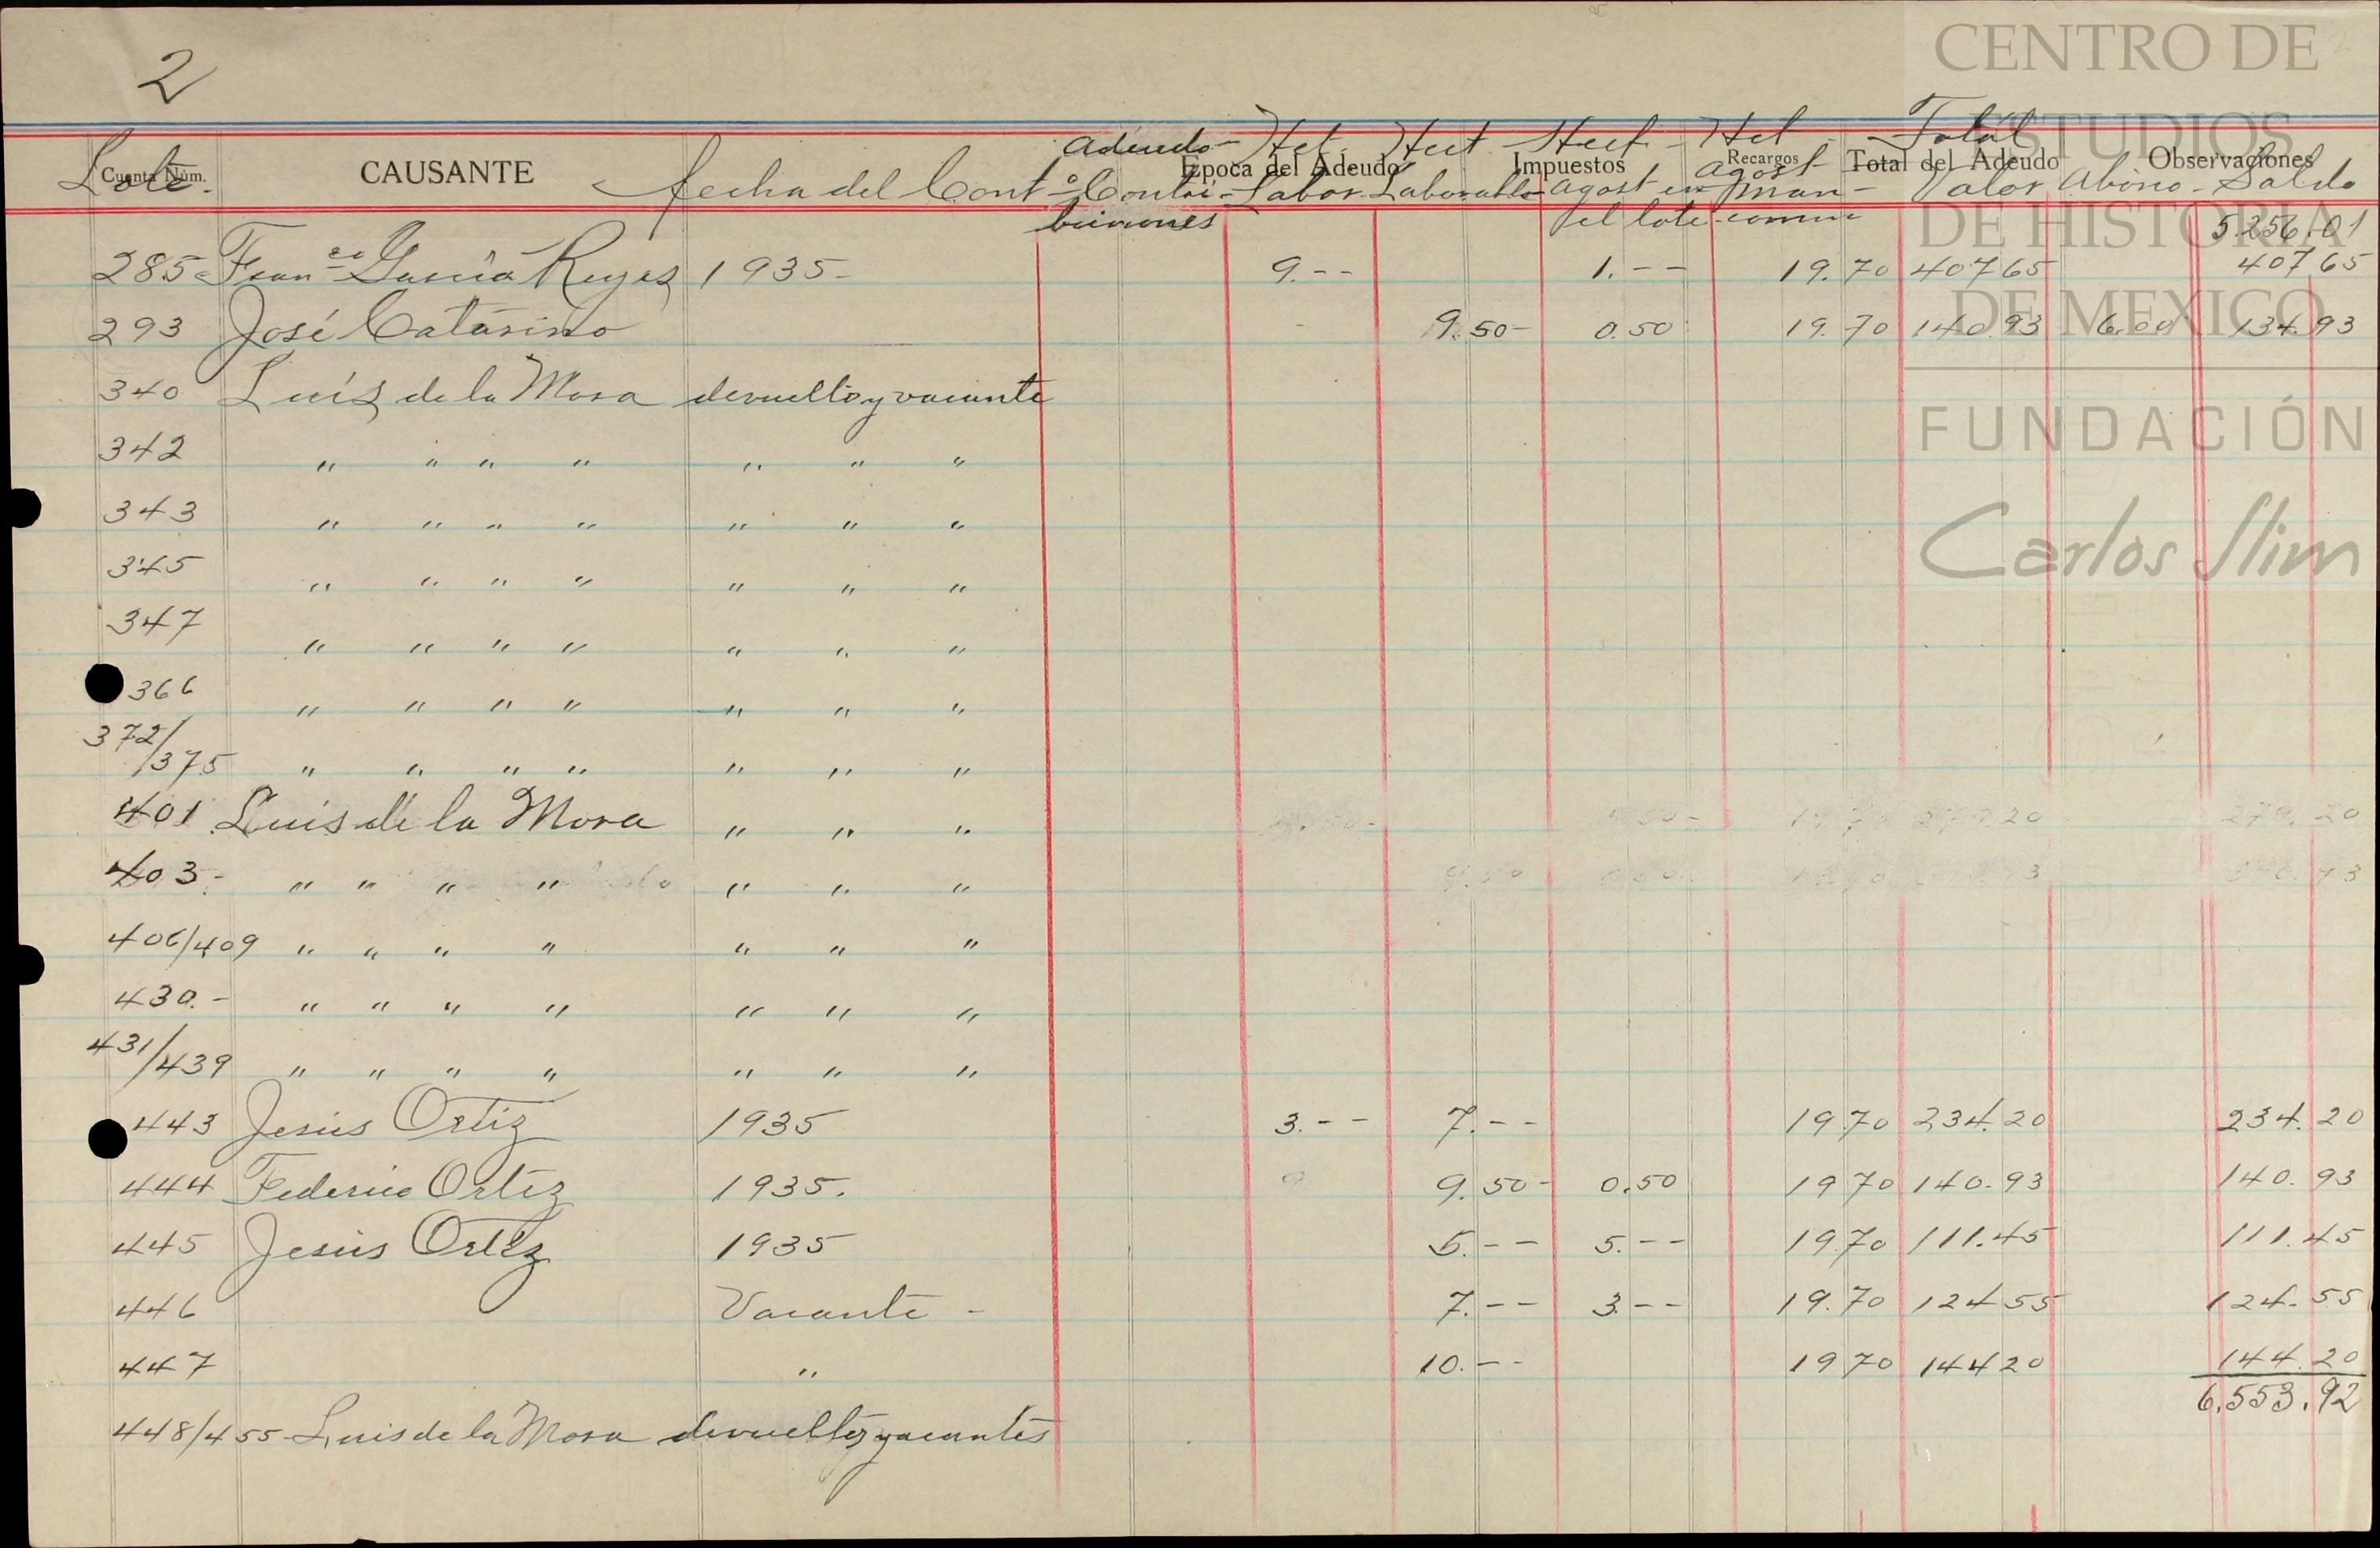 2
CENTRO DE
ESTUDIOS
DE HISTORIA
DE MEXICO
FUNDACIÓN
Carlos Slim
Adeudo- Het Hect Hect- Het Total
Cuenta Núm. CAUSANTE Epoca del Adeudo Impuestos Recargos Total del Adeudo Observaciones
Lote. fecha del Contº Contri- Labor Laborable agost en agost man- Valor Abono - Saldo
buciones el lote comun
5.256.01
285 Franco García Reyes 1935- 9.-- 1.-- 19.70 407 65 407 65
293 José Catarino 9.50- 0.50 19.70 140.93 6.00 134.93
340 Luis de la Mora devuelto y vacante
342 " " " " " " "
343 " " " " " " "
345 " " " " " " "
347 " " " " " " "
366 " " " " " " "
372/375 " " " " " " "
401 Luis de la Mora " " " 279.20
403- " " " " " " "
406/409 " " " " " " "
430.- " " " " " " "
431/439 " " " " " " "
443 Jesús Ortiz 1935 3.-- 7.-- 19.70 234.20 234.20
444 Federico Ortiz 1935. 9.50- 0.50 19 70 140.93 140.93
445 Jesús Ortiz 1935 5.-- 5.-- 19.70 111.45 111.45
446 Vacante - 7.-- 3.-- 19.70 124 55 124.55
447 " 10.-- 19 70 144 20 144.20
6,553.92
448/455- Luis de la Mora devueltos y vacantes